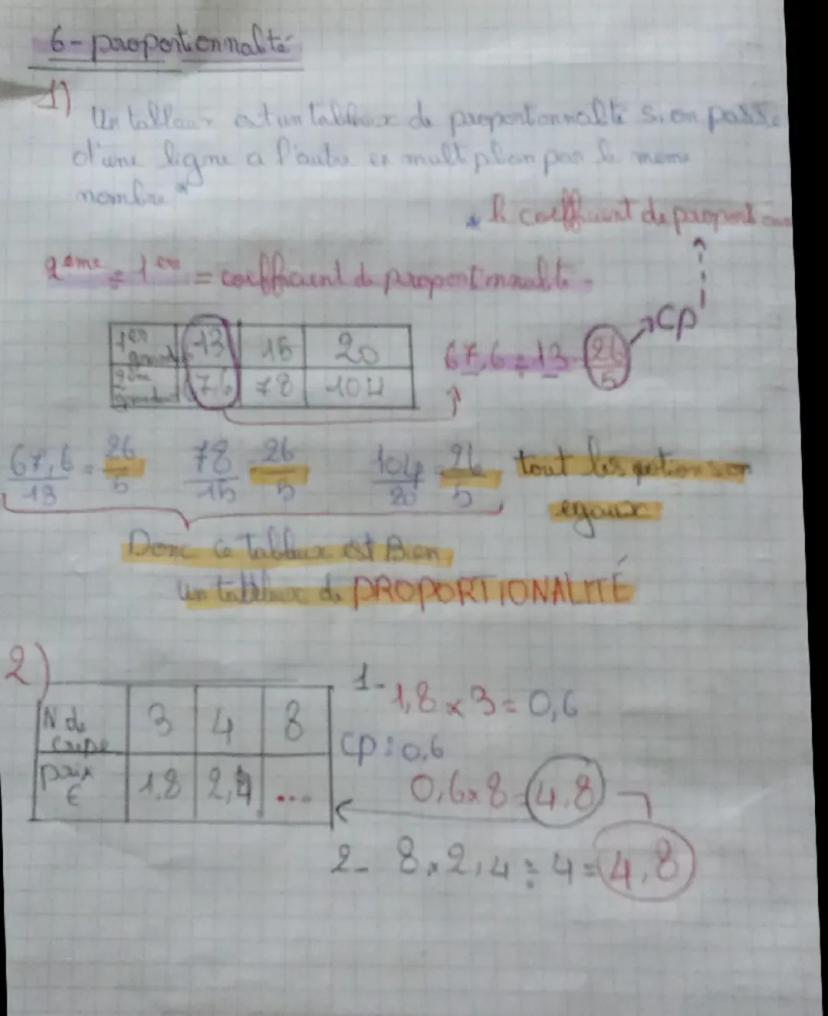 6- proportionnalité
1)
Un tableau est un tableux de proportonnalté si on passe
d'une ligne a l'autre en multiplian par le meme
nombre *
* le coefficient de proportion
2ème ÷ 1er = coefficient de proportionnalité.
1er 13 15 20
2em 67,6 78 104
67,6 ÷ 13 = 26/5 → CP
67,6/13 = 26/5 78/15 = 26/5 104/20 = 26/5 tout les
egaux
Donc ce tableux est Bien
un tableux de PROPORTIONALITÉ
2)
N de crêpe 3 4 8
prix € 1,8 2,4 ...
1- 1,8 x 3 = 0,6
CP : 0,6
0,6 x 8 = 4,8
2- 8 x 2,4 ÷ 4 = 4,8